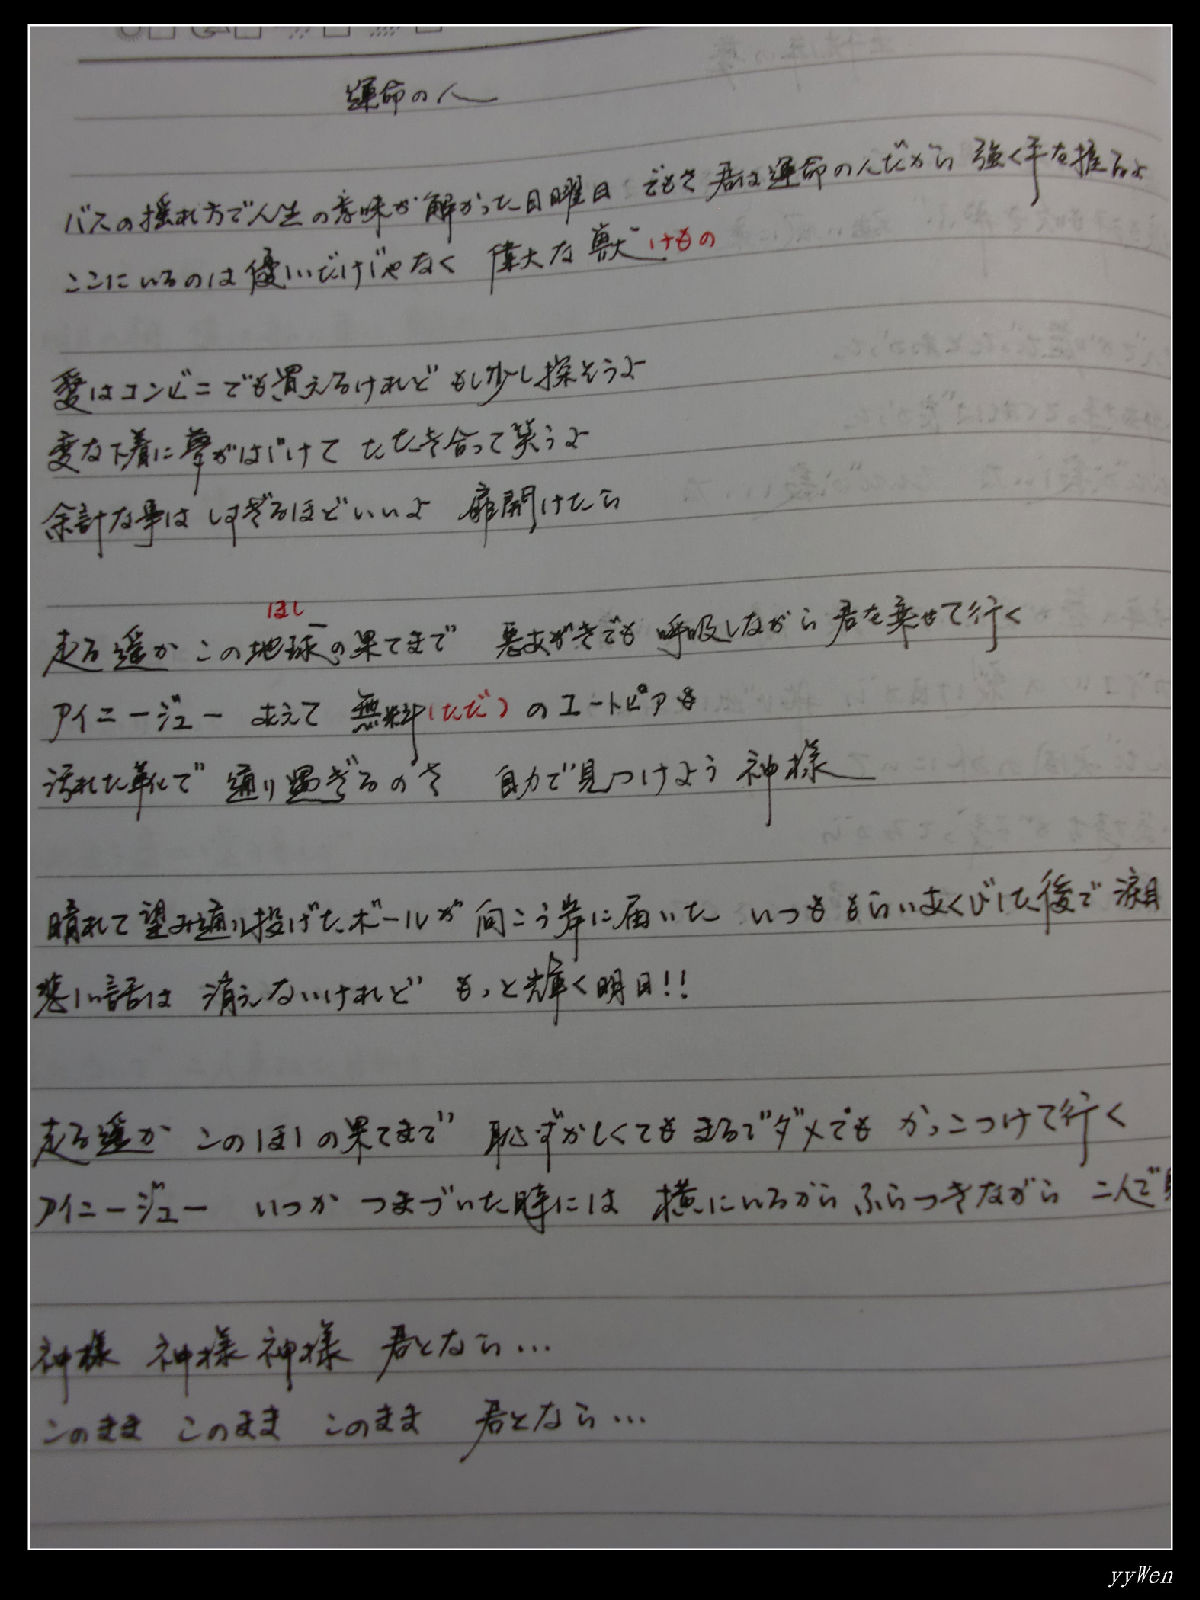 運命の人
バスの揺れ方で人生の意味が解かった日曜日 でもさ君は運命の人だから 強く手を握るよ
ここにいるのは優しいだけじゃなく 偉大な獣けもの
愛はコンビニでも買えるけれど もし少し探そうよ
変な下着に夢がはじけて たたき合って笑うよ
余計な事は しすぎるほどいいよ 扉開けたら
ほし
走る遥か この地球の果てまで 悪あがきでも 呼吸しながら 君を乗せて行く
アイニージュー あえて 無料(ただ)のユートピアも
汚れた靴で 通り過ぎるのさ 自力で見つけよう 神様
晴れて望み通り投げたボールが 向こう岸に届いた いつももらいあくびした後で 涙目
悲しい話は 消えないけれど もっと輝く明日!!
走る遥か このほしの果てまで 恥ずかしくても まるでダメでも かっこつけて行く
アイニージュー いつか つまづいた時には 横にいるから ふらつきながら 二人で
神様 神様 神様 君となら…
このまま このまま このまま 君となら…
yyWen